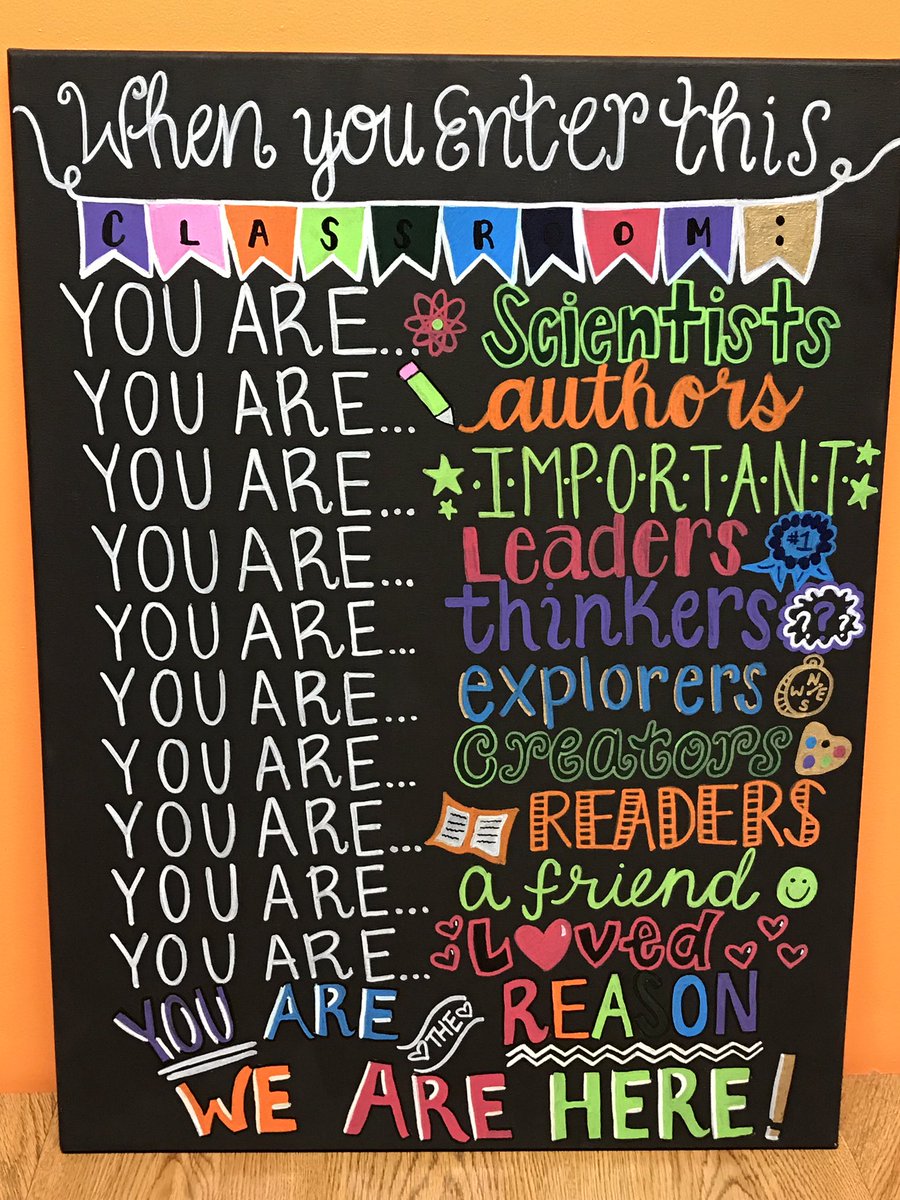 When you Enter this
CLASSROOM:
YOU ARE... Scientists
YOU ARE... authors
YOU ARE... I·M·P·O·R·T·A·N·T
YOU ARE... Leaders #1
YOU ARE... thinkers ???
YOU ARE... explorers N W E S
YOU ARE... Creators
YOU ARE... READERS
YOU ARE... a friend
YOU ARE... Loved
YOU ARE THE REASON
WE ARE HERE!